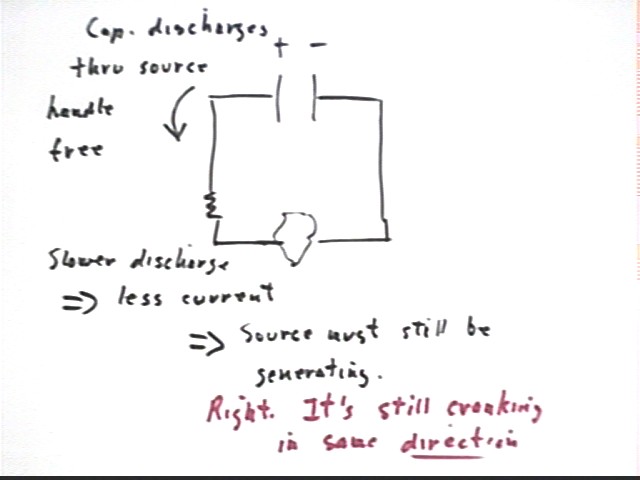 Cap. discharges
+ -
thru source
handle
free
Slower discharge
=> less current
=> Source must still be
generating.
Right. It's still cranking
in same direction